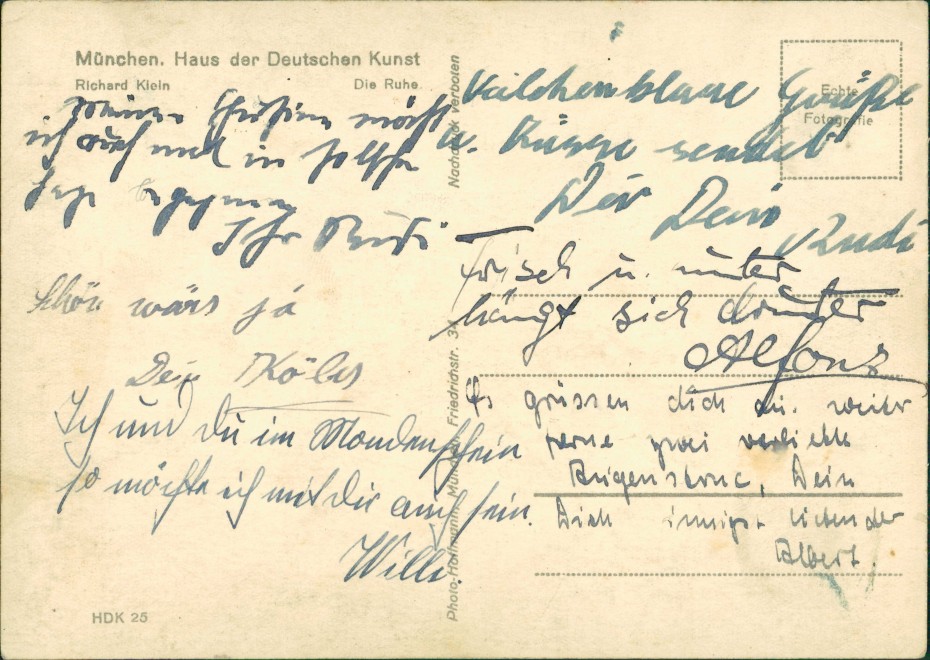 München. Haus der Deutschen Kunst
Richard Klein
Die Ruhe
möcht
ich auch mal in
Ihr Rudi
Schön wärs ja
Dein
Ich und Du im Mondenschein
so möchte ich mit Dir auch sein.
Willi.
HDK 25
Photo-Hoffmann, München, Friedrichstr. 34
Nachdruck verboten
Echte
Fotografie
Veilchenblaue Grüße
u. Küsse sendet
Dir Dein
Rudi
Frisch u. munter
hängt sich drunter
Alfons
Es grüssen dich aus weiter
ferne zwei verliebte
Augensterne, Dein
Dich innigst liebender
Albert.